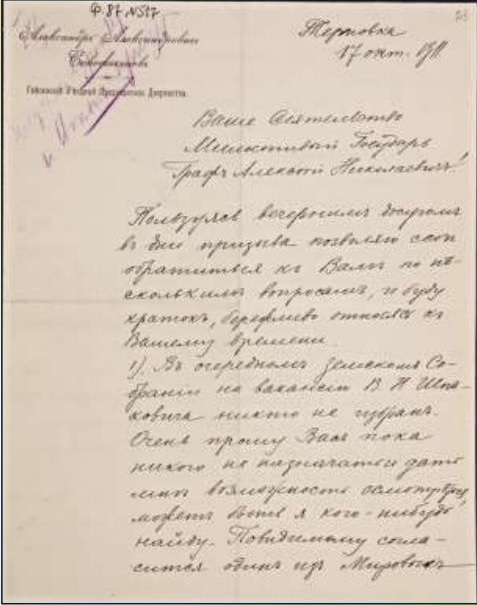 Ф. 87. N 517
Александръ Александровичъ
Гайсинскій Уѣздный Предводитель Дворянства.
Терновка
17 окт. 1911.
Ваше Сіятельство
Милостивый Государь
Графъ Алексѣй Николаевичъ!
Пользуясь вечернимъ досугомъ
въ дни призыва позволяю себѣ
обратиться къ Вамъ по нѣ-
сколькимъ вопросамъ, и буду
кратокъ, бережливо относясь къ
Вашему времени.
1). Въ очередномъ Земскомъ Со-
браніи на вакансію В. Н. Шпа-
ковича никто не избранъ.
Очень прошу Васъ пока
никого не назначать и дать
мнѣ возможность осмотрѣться
можетъ быть я кого-нибудь
найду. Повидимому согла-
сится одинъ изъ Мировыхъ